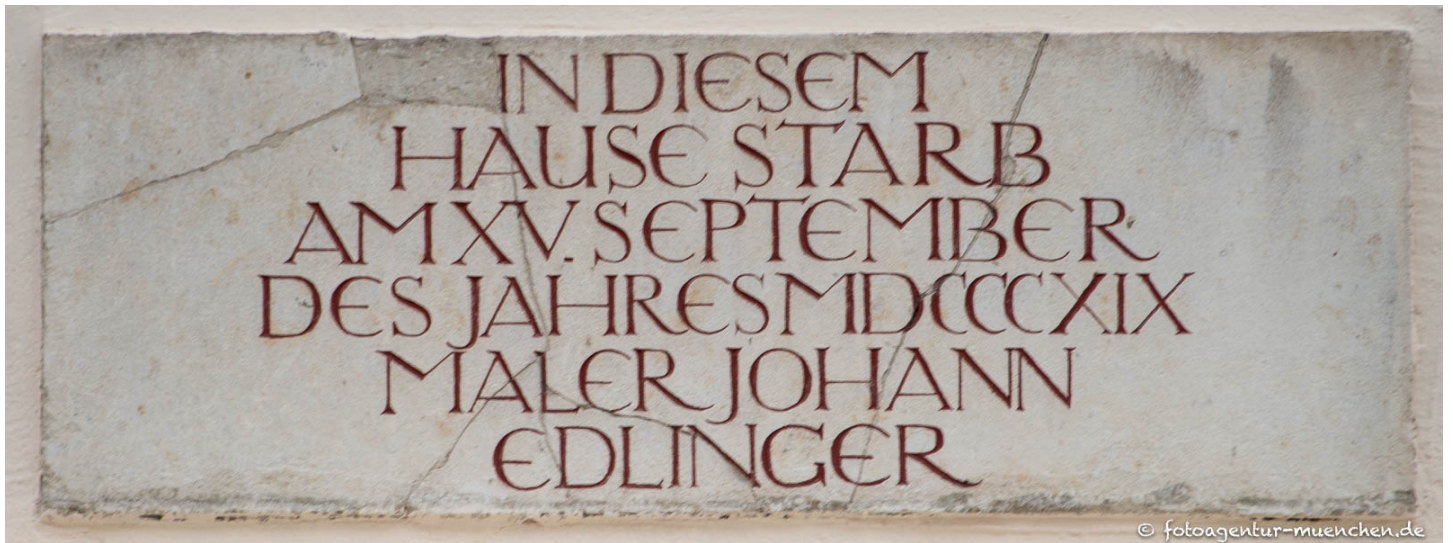 IN DIESEM
HAUSE STARB
AM XV. SEPTEMBER
DES JAHRES MDCCCXIX
MALER JOHANN
EDLINGER
© fotoagentur-muenchen.de